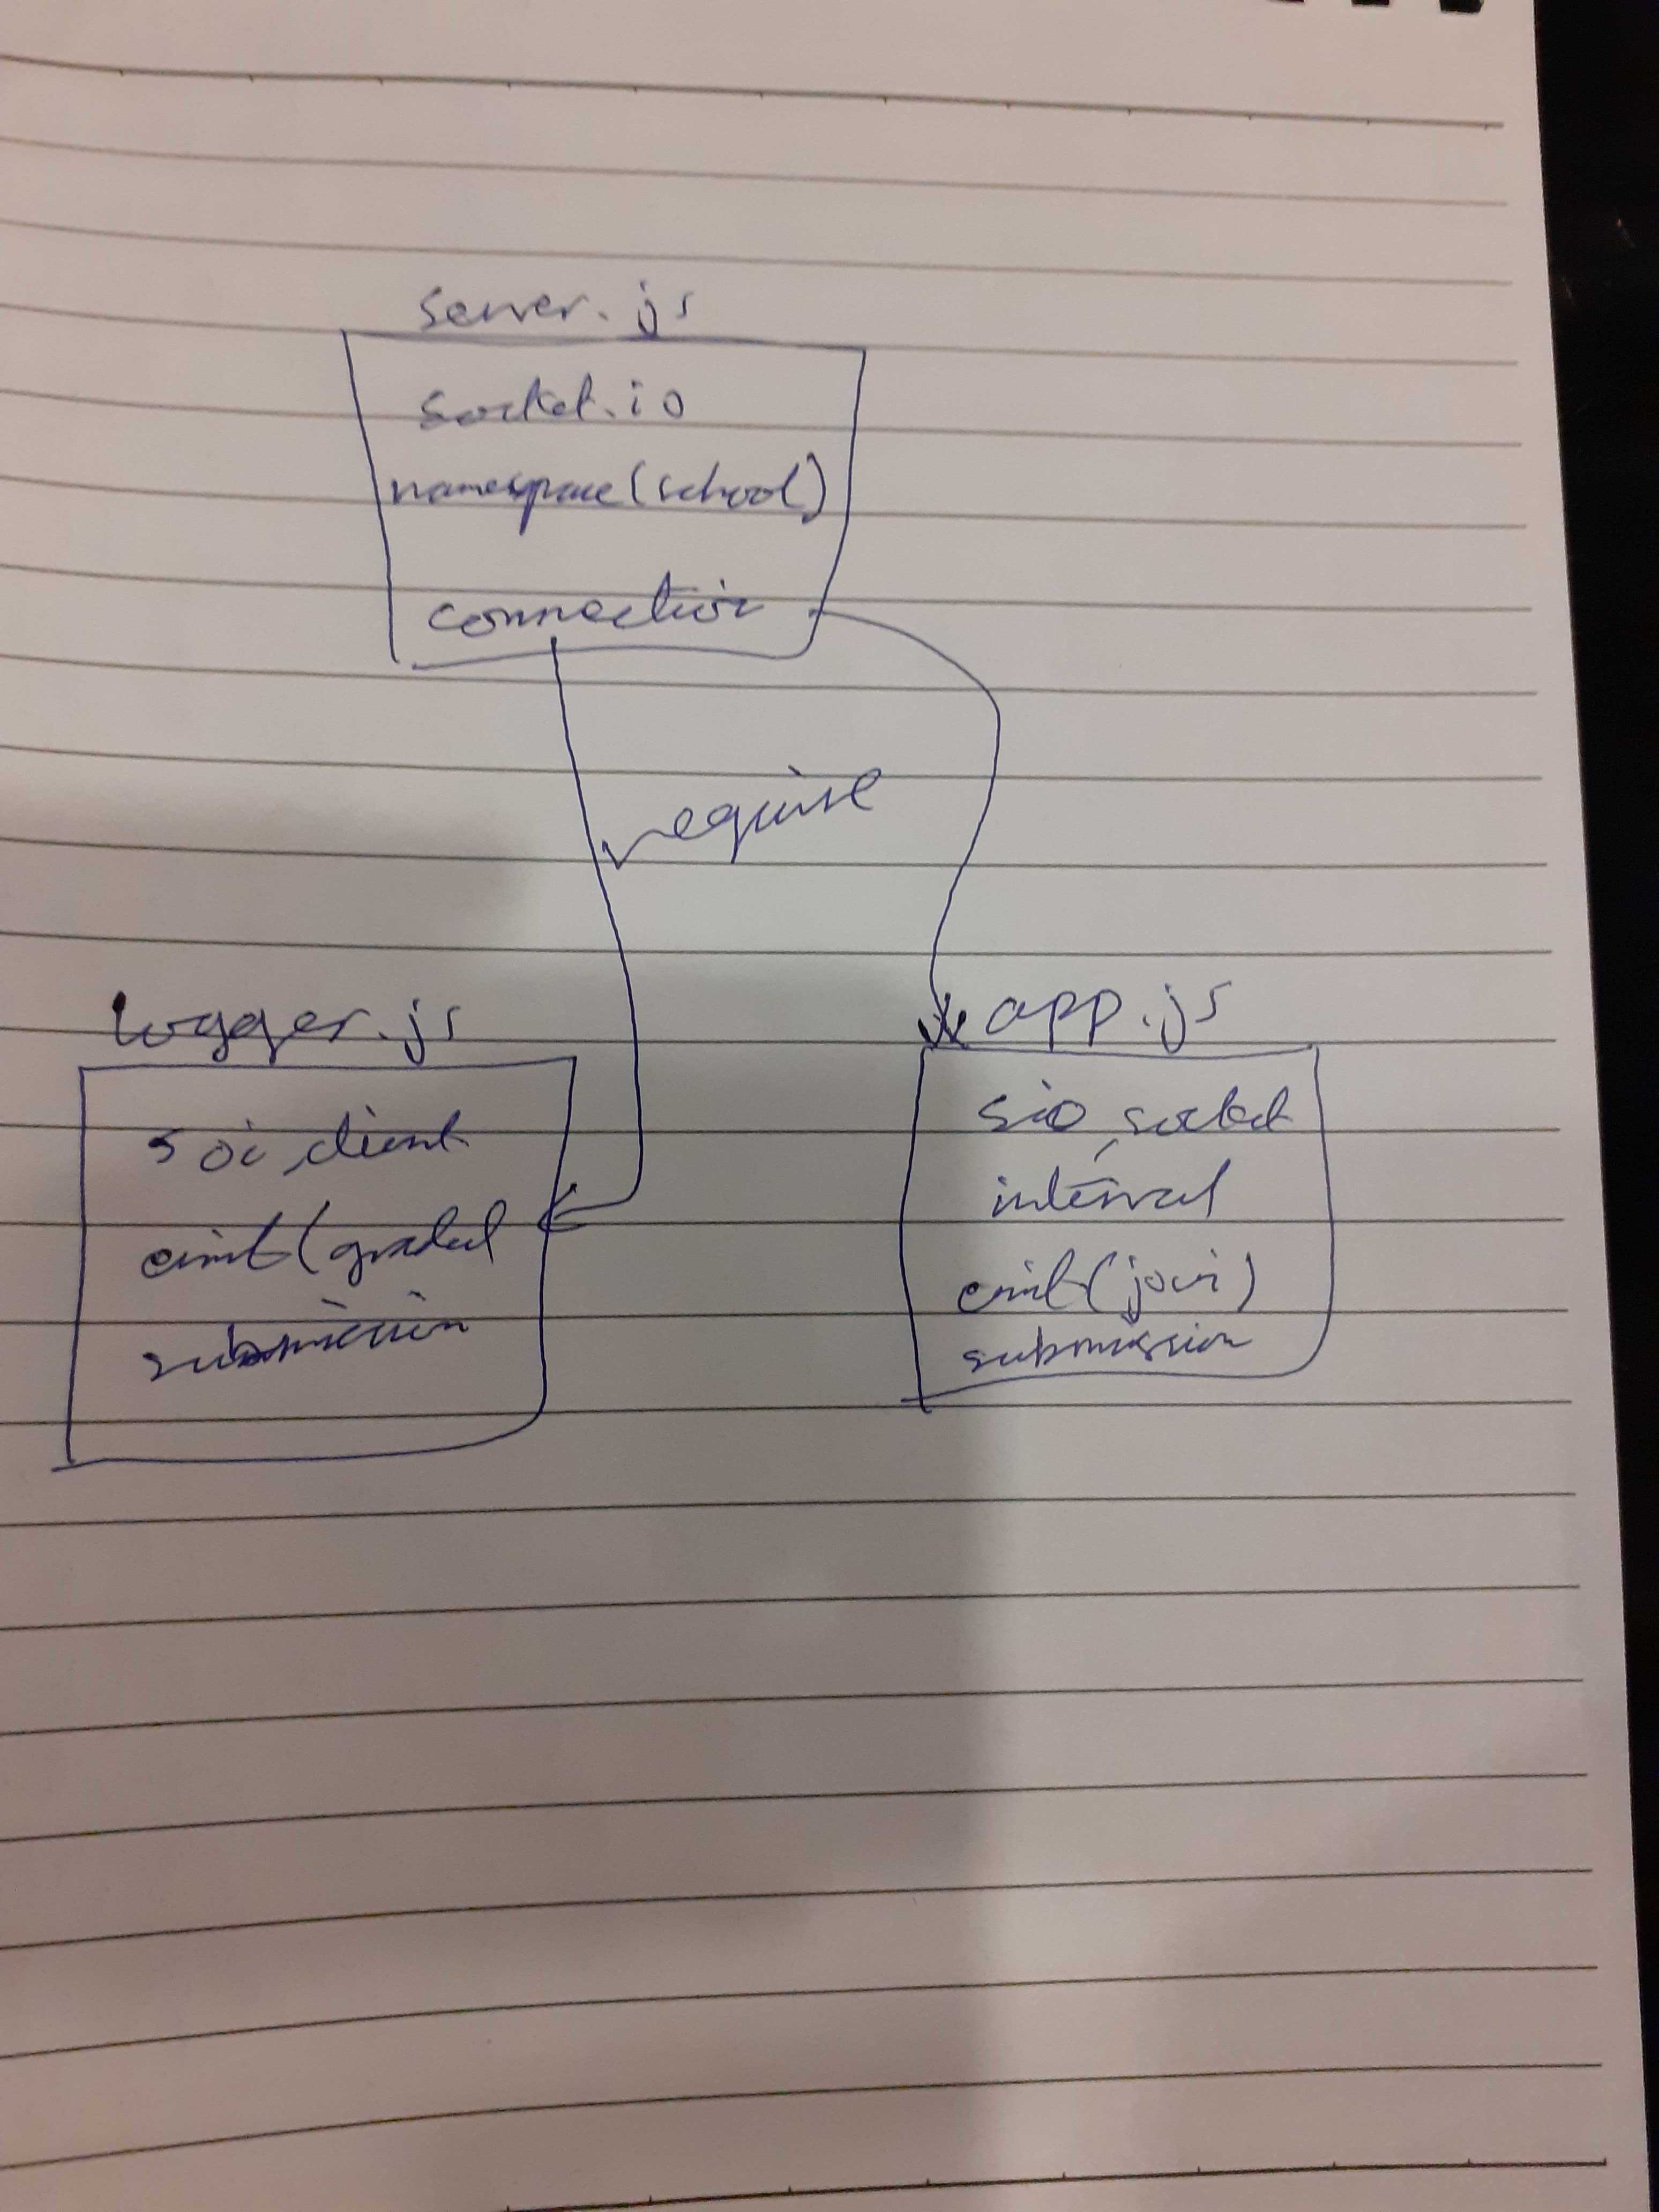 server.js
socket.io
namespace(school)
connection
require
logger.js
soi, client
emit(graded
submission
app.js
sio, socket
interval
emit(join)
submission